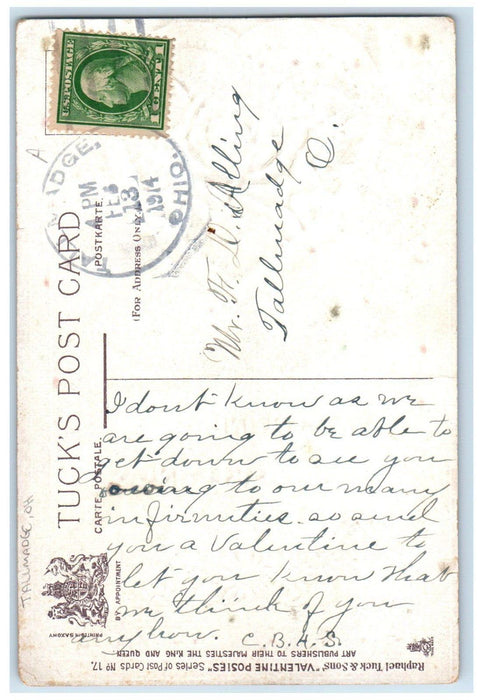 U.S. POSTAGE
1 CENT 1
ADGE, OHIO
PM
FEB
13
1914
A
TUCK'S POST CARD
CARTE POSTALE.
POSTKARTE.
(FOR ADDRESS ONLY.)
Mr. D. Alling
Tallmadge
O.
I dont know as we
are going to be able to
get down to see you
owing to our many
infirmities so send
you a Valentine to
let you know that
we think of you
anyhow. C.B.H.S.
TALLMADGE, OH
BY APPOINTMENT
PRINTED IN SAXONY
Raphael Tuck & Sons' "VALENTINE POSIES" Series of Post Cards No 17.
ART PUBLISHERS TO THEIR MAJESTIES THE KING AND QUEEN.